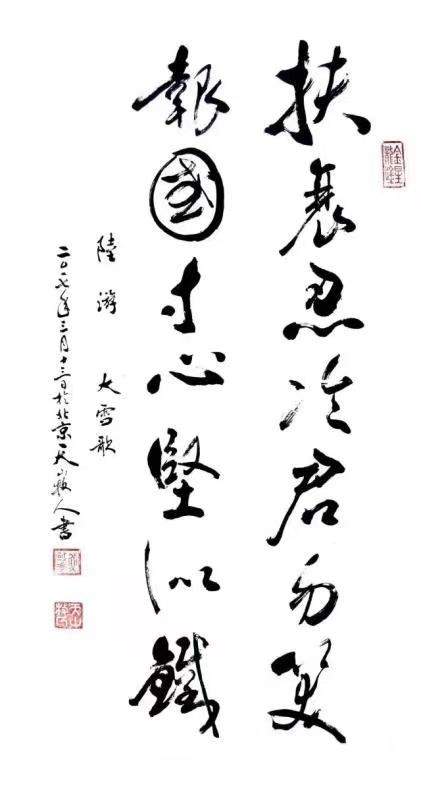 扶衰忍冷君勿笑
報國寸心堅似鐵
陸游 大雪歌
二〇一七年三月十三日於北京天人書